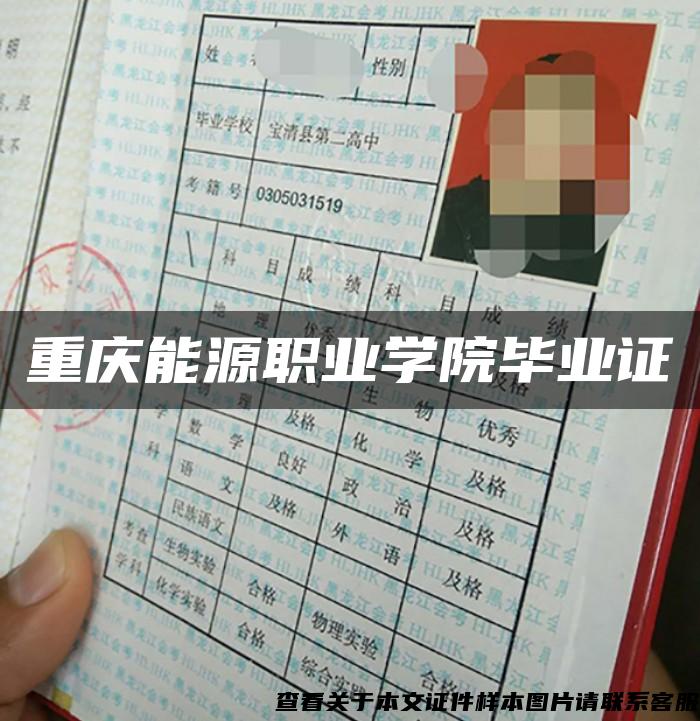 明
姓
性别
毕业学校
宝清县第二高中
考籍号
0305031519
科目 成绩 科目 成绩
地理 优秀
及格
重庆能源职业学院毕业证
物理 及格 生物 优秀
数学 良好 化学 及格
学科
语文 及格 政治 及格
民族语文 外语 及格
考查学科
生物实验 合格 物理实验
化学实验 合格 综合实 合格
查看关于本文证件样本图片请联系客服